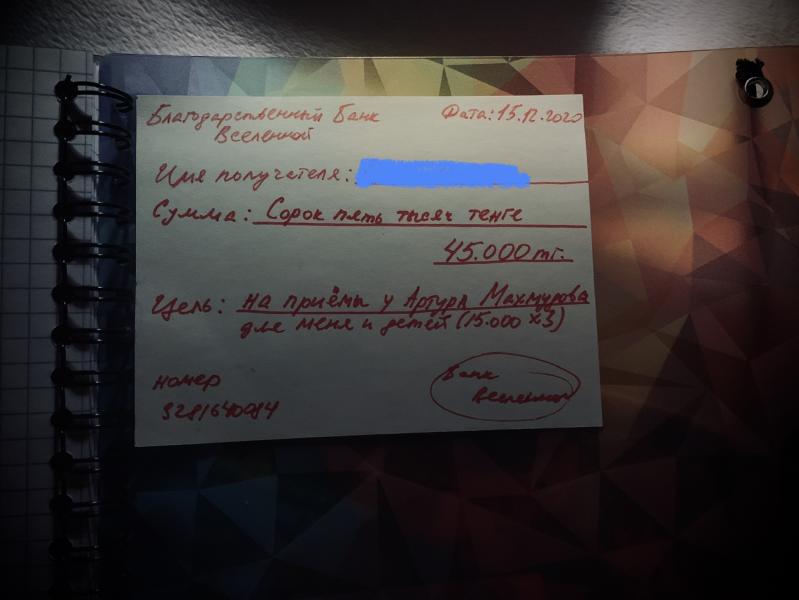 Благодарственный Банк
Вселенной
Дата: 15.12.2020
Имя получателя:
Сумма: Сорок пять тысяч тенге
45.000 тг.
Цель: на приёмы у Артура Махмудова
для меня и детей (15.000 х 3)
номер
Банк
Вселенной